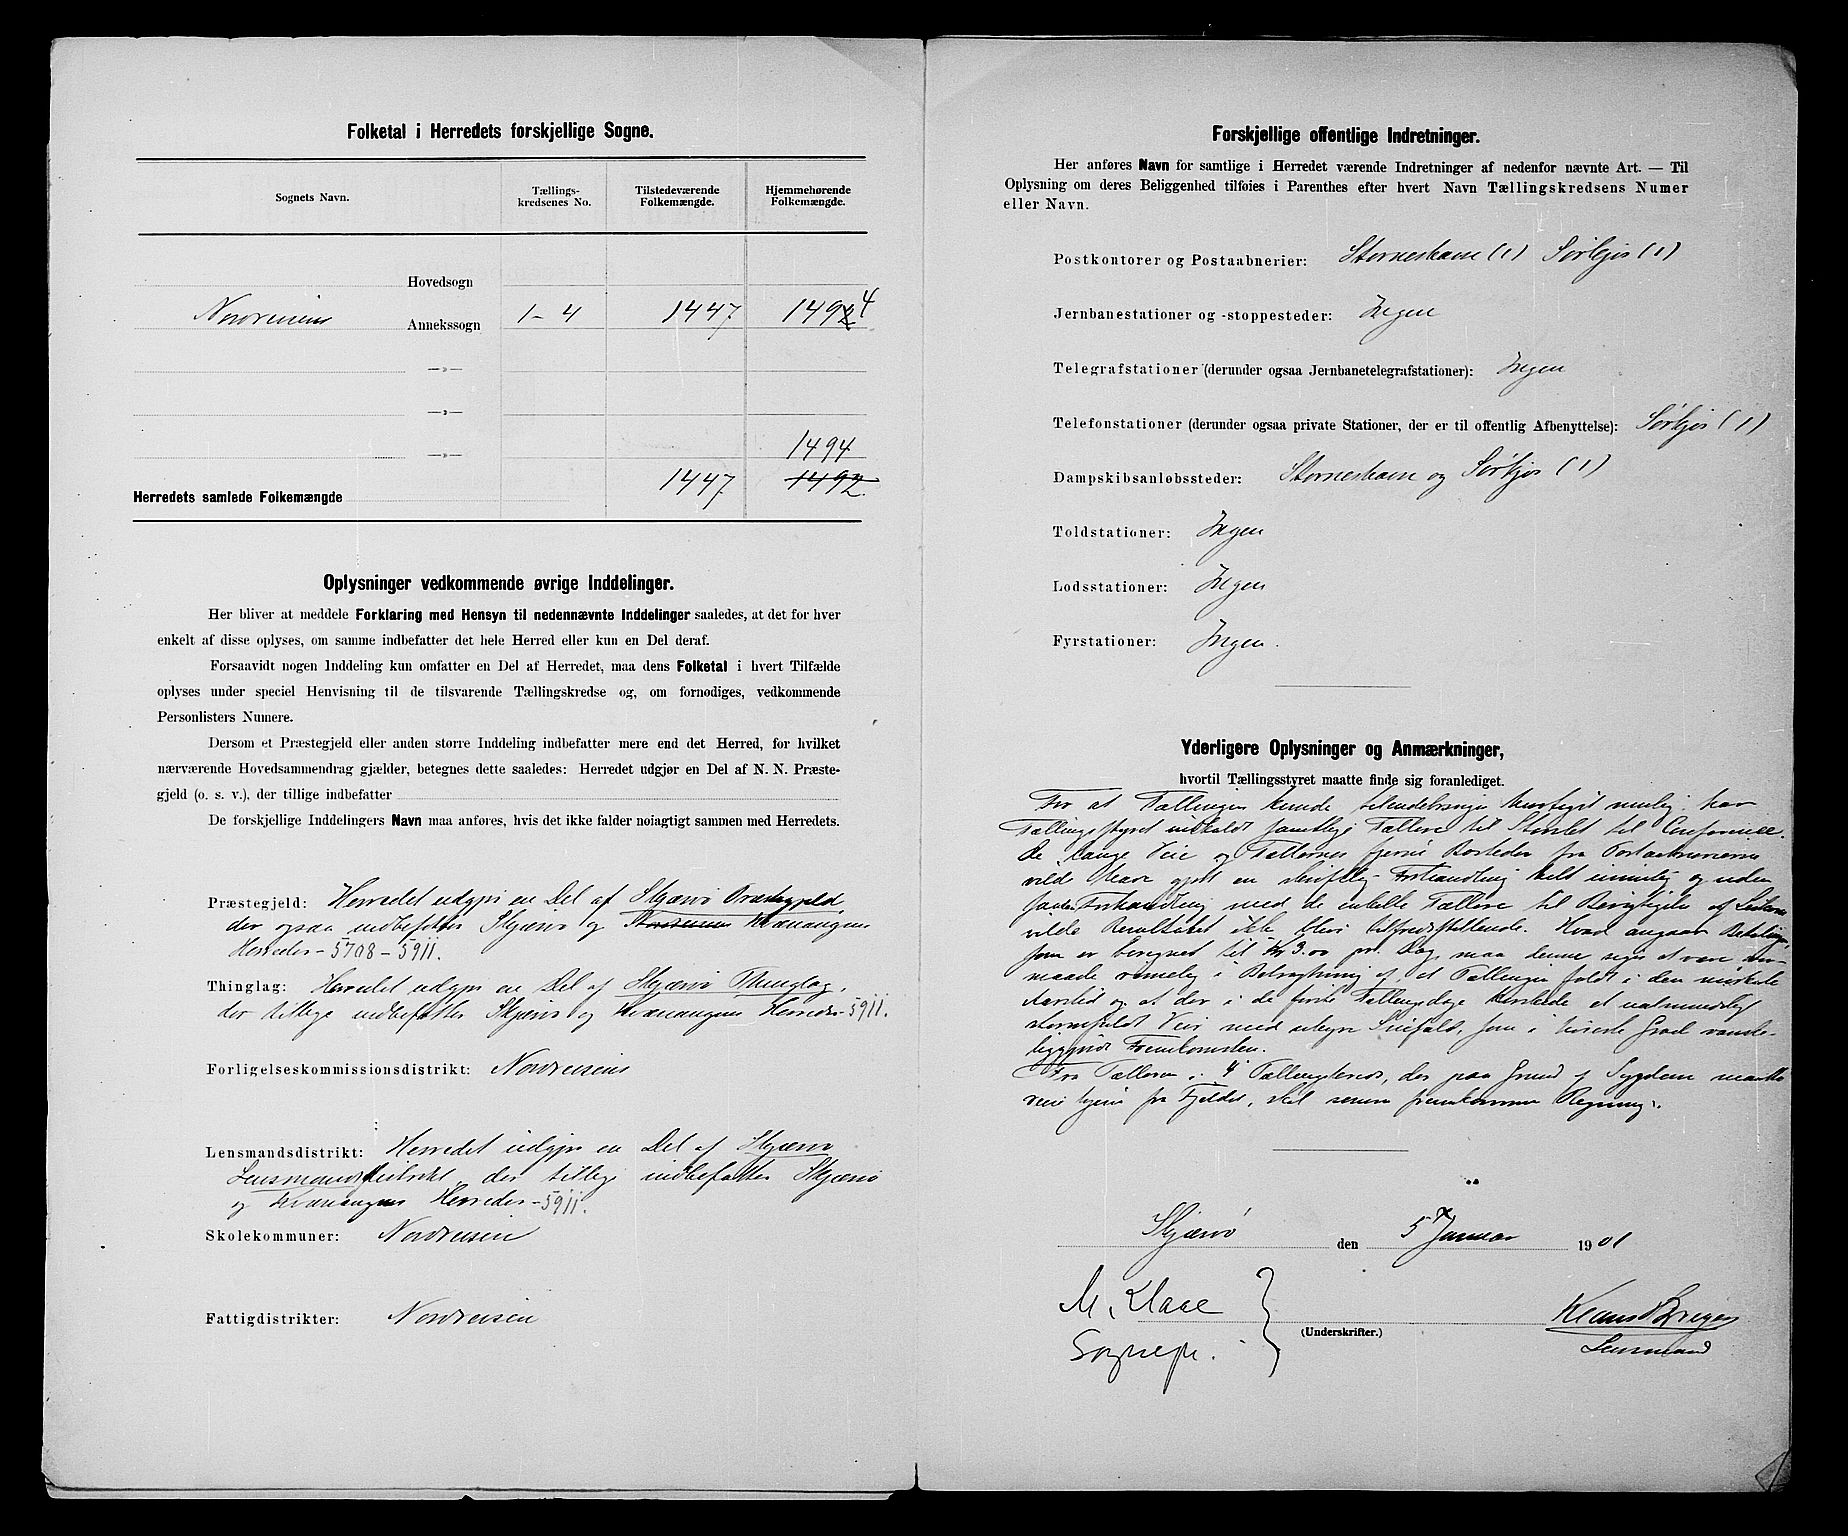 Folketal i Herredets forskjellige Sogne.
Sognets Navn.
Tællings-
kredsenes No.
Tilstedeværende
Folkemængde.
Hjemmehørende
Folkemængde.
Hovedsogn
Nordreisens Annekssogn 1-4 1447. 1492 4
—»—
—»—
1494
—»—
Herredets samlede Folkemængde 1447. 1492.
Oplysninger vedkommende øvrige Inddelinger.
Her bliver at meddele Forklaring med Hensyn til nedennævnte Inddelinger saaledes, at det for hver
enkelt af disse oplyses, om samme indbefatter det hele Herred eller kun en Del deraf.
Forsaavidt nogen Inddeling kun omfatter en Del af Herredet, maa dens Folketal i hvert Tilfælde
oplyses under speciel Henvisning til de tilsvarende Tællingskredse og, om fornødiges, vedkommende
Personlisters Numere.
Dersom et Præstegjeld eller anden større Inddeling indbefatter mere end det Herred, for hvilket
nærværende Hovedsammendrag gjælder, betegnes dette saaledes: Herredet udgjør en Del af N. N. Præste-
gjeld (o. s. v.), der tillige indbefatter
De forskjellige Inddelingers Navn maa anføres, hvis det ikke falder nøiagtigt sammen med Herredets.
Præstegjeld: Herredet udgjør en Del af Skjærvø Præstegjeld
der ogsaa indbefatter Skjærvø og Nordreisens Kvænangens
Herreder - 5708 - 5911.
Thinglag: Herredet udgjør en Del af Skjærvø Thinglag,
der tillige indbefatter Skjærvø og Kvænangens Herreder - 5911.
Forligelseskommissionsdistrikt: Nordreisens
Lensmandsdistrikt: Herredet udgjør en Del af Skjærvø
Lensmandsdistrikt, der tillige indbefatter Skjærvø
og Kvænangens Herreder - 5911.
Skolekommuner: Nordreisen
Fattigdistrikter: Nordreisen
Forskjellige offentlige Indretninger.
Her anføres Navn for samtlige i Herredet værende Indretninger af nedenfor nævnte Art. — Til
Oplysning om deres Beliggenhed tilføies i Parenthes efter hvert Navn Tællingskredsens Numer
eller Navn.
Postkontorer og Postaabnerier: Storneshavn (1) Sørkjos (1)
Jernbanestationer og -stoppesteder: Ingen
Telegrafstationer (derunder ogsaa Jernbanetelegrafstationer): Ingen
Telefonstationer (derunder ogsaa private Stationer, der er til offentlig Afbenyttelse): Sørkjos (1)
Dampskibsanløbssteder: Storneshavn og Sørkjos (1)
Toldstationer: Ingen
Lodsstationer: Ingen
Fyrstationer: Ingen.
Yderligere Oplysninger og Anmærkninger,
hvortil Tællingsstyret maatte finde sig foranlediget.
For at Tællingen kunde tilendebringes hurtigst mulig, har
Tællingsstyret indkaldt samtlige Tællere til Storslet til Conference.
De lange Veie og Tællernes fjerne Bosteder fra Postaabnerierne
vilde have gjort en skriftlig Forhandling helt umulig og uden
saadan Forhandling med de enkelte Tællere til Berigtigelse af Listerne
vilde Resultatet ikke blevet tilfredsstillende. Hvad angaar Betalingen,
som er beregnet til Kr 3.00 pr. Dag, maa denne siges at være
maade rimelig i Betragtning af, at Tællingen faldt i den mørkeste
Aarstid og at der i de første Tællingsdage herskede et ualmindelig
stormfuldt Veir med uhyre Snefald, som i høieste Grad vanske-
liggjorde Fremkomsten.
Fra Tælleren i 4 Tællingskreds, der paa Grund af Sygdom maatte
reise hjem fra Fjeldet, skal senere fremkomme Regning.
Skjærvø den 5 Januar 1901
M. Klaae
Sognepr.
(Underskrifter.)
Lensmand